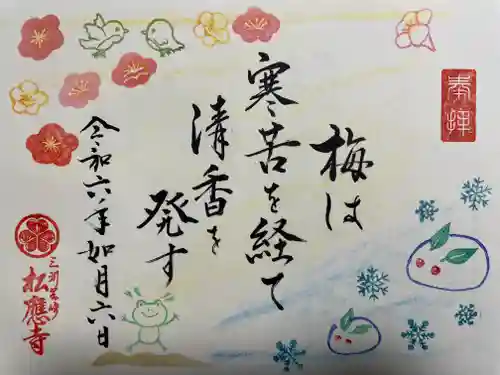 奉拝
梅は
寒苦を経て
清香を
発す
令和六年如月六日
三河岡崎
松應寺